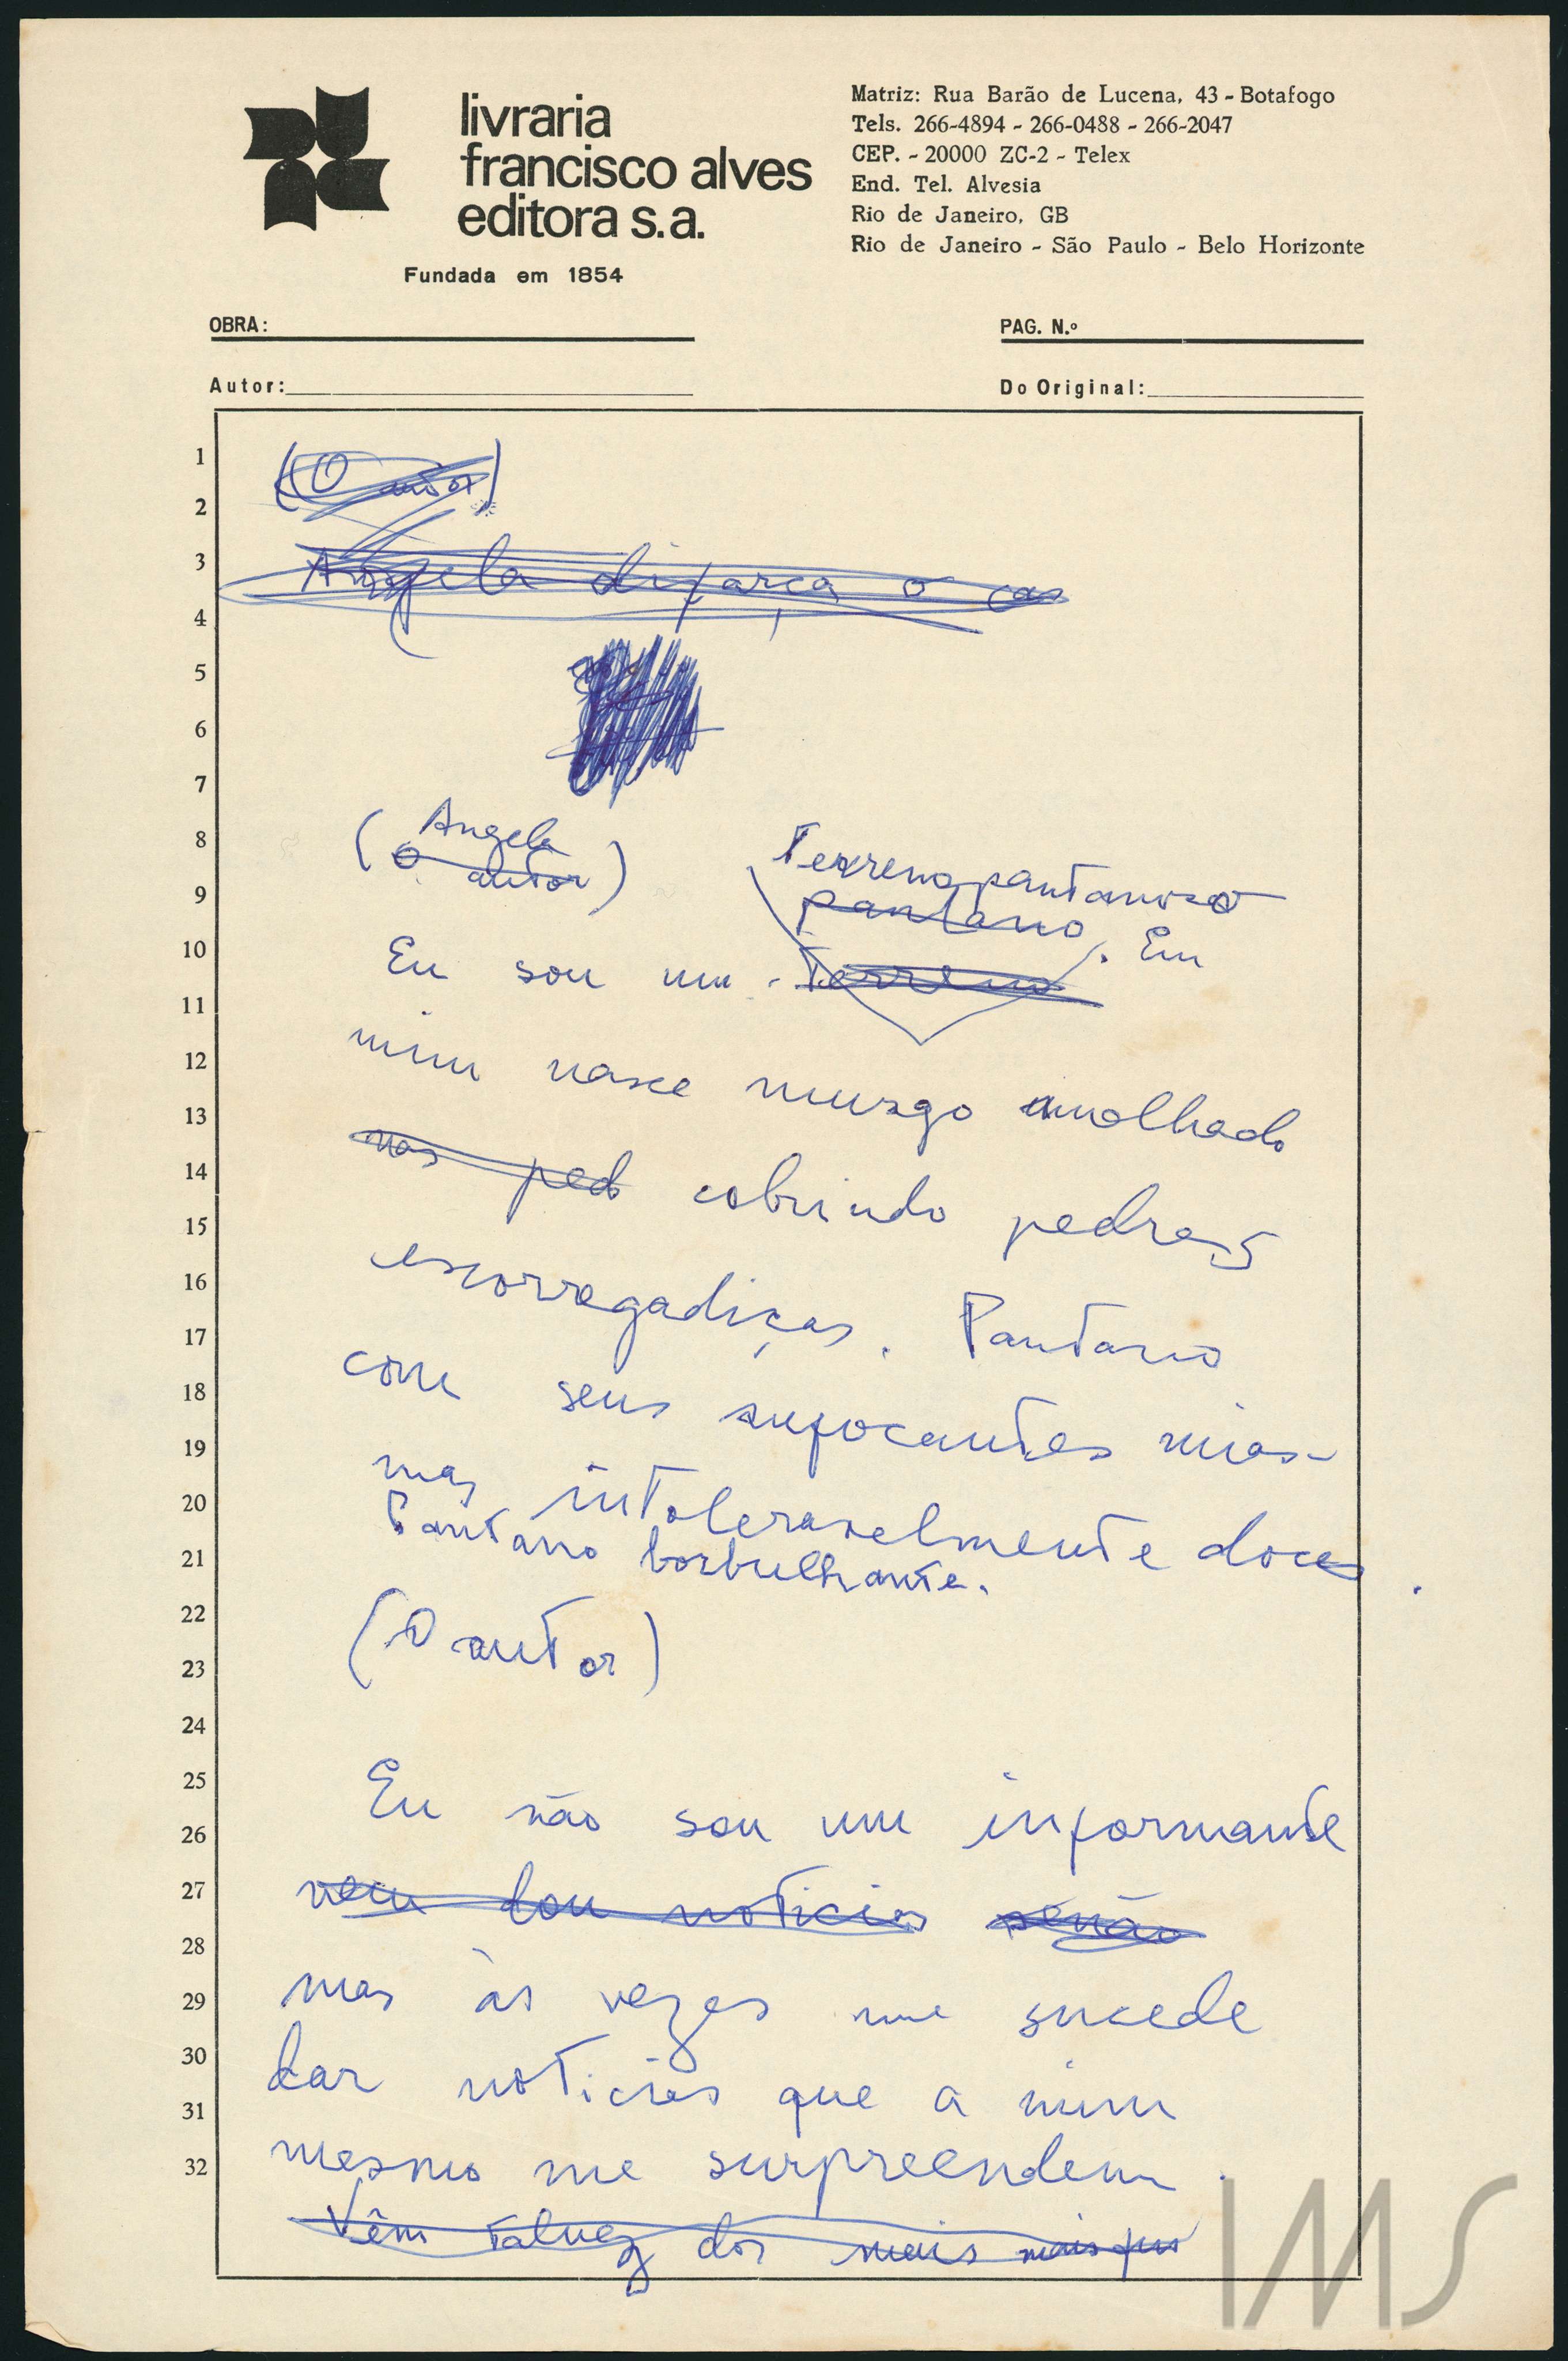 livraria
francisco alves
editora s.a.
Fundada em 1854
Matriz: Rua Barão de Lucena, 43 - Botafogo
Tels. 266-4894 - 266-0488 - 266-2047
CEP. - 20000 ZC-2 - Telex
End. Tel. Alvesia
Rio de Janeiro, GB
Rio de Janeiro - São Paulo - Belo Horizonte
OBRA:
PAG. N.º
Autor:
Do Original:
1
2
3
4
5
6
7
8
9
10
11
12
13
14
15
16
17
18
19
20
21
22
23
24
25
26
27
28
29
30
31
32
(O autor)
Angela disfarça o
Angela
(O autor)
Terreno pantanoso
pantano
Eu sou um Terreno. Em
mim nasce musgo molhado
nas ped cobrindo pedras
escorregadiças. Pantano
com seus sufocantes mias-
mas intoleravelmente doces.
Pantano borbulhante.
(O autor)
Eu não sou um informante
nem dou noticias senão
mas às vezes me sucede
dar noticias que a mim
mesmo me surpreendem.
Vêm talvez dos mais mais
IMS